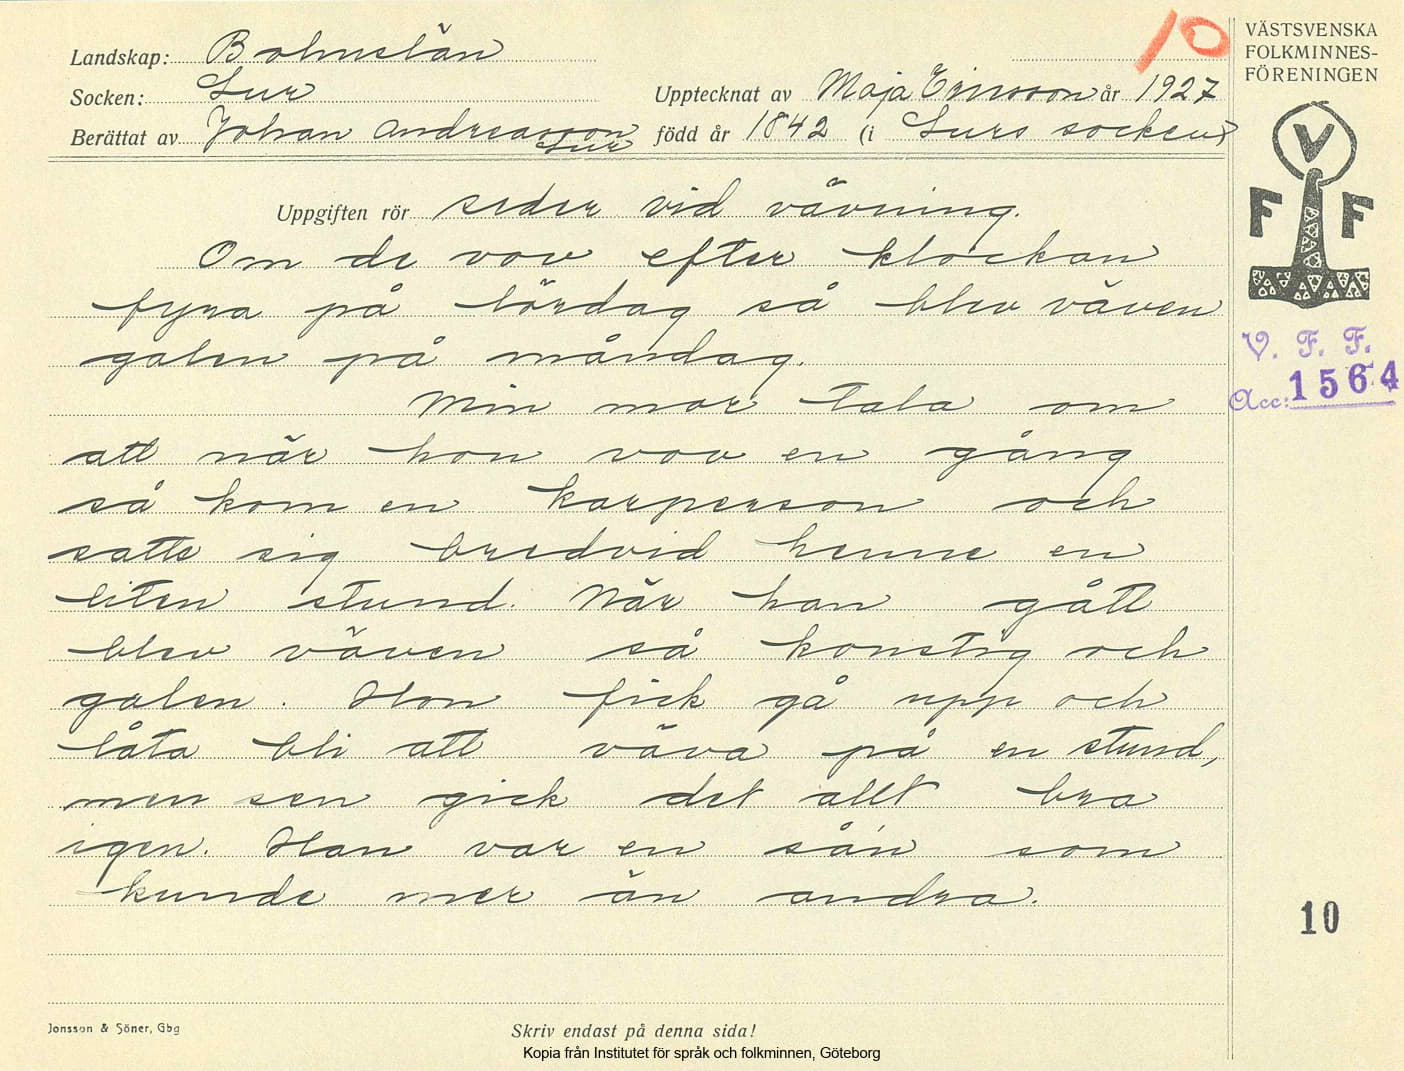 Landskap: Bohuslän
Socken: Lur
Upptecknat av Maja Ericsson år 1927
Berättat av Johan Andreasson Lur född år 1842 (i Lurs socken)
10
VÄSTSVENSKA
FOLKMINNES-
FÖRENINGEN
V
F F
V. F. F.
Acc: 1564
Uppgiften rör seder vid vävning.
Om de vov efter klockan
fyra på lördag så blev väven
galen på måndag.
Min mor tala om
att när hon vov en gång
så kom en karperson och
satte sig bredvid henne en
liten stund. När han gått
blev väven så konstig och
galen. Hon fick gå upp och
låta bli att väva på en stund,
men sen gick det allt bra
igen. Han var en så'n som
kunde mer än andra.
10
Jonsson & Söner, Gbg
Skriv endast på denna sida!
Kopia från Institutet för språk och folkminnen, Göteborg